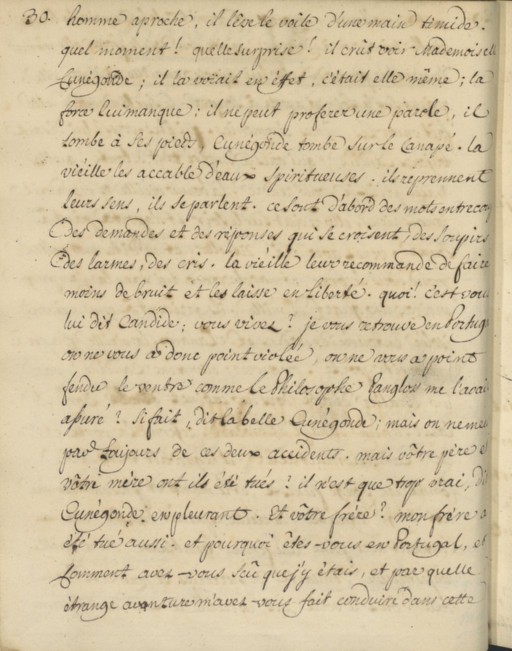 30. homme aproche, il lève le voile d'une main timide.
quel moment! quelle surprise! il crût voir Mademoisell
Cunégonde; il la voiait en effet, c'était elle même; la
force lui manque: il ne peut proferer une parole, il
tombe à ses pieds, Cunégonde tombe sur le Canapé. la
viéille les accable d'eaux spiritueuses. ils reprennent
leurs sens, ils se parlent. ce sont d'abord des mots entrecou
des demandes et des réponses qui se croisent, des soupirs
des larmes, des cris. la viéille leur recommande de faire
moins de bruit et les laisse en liberté. quoi! c'est vous
lui dit Candide; vous vivez? je vous retrouve en Portuga
on ne vous a donc point violée, on ne vous a point
fendu le ventre comme le Philosophe Pangloss me l'avai
assuré? si fait, dit la belle Cunégonde; mais on ne meu
pas toujours de ces deux accidents. mais vôtre père e
vôtre mère ont ils été tués? il n'est que trop vrai, di
Cunégonde en pleurant. Et vôtre frère? mon frère a
été tué aussi. et pourquoi êtes-vous en Portugal, et
comment avez-vous sçû que j'y étais, et par quelle
étrange avanture m'avez-vous fait conduire dans cette